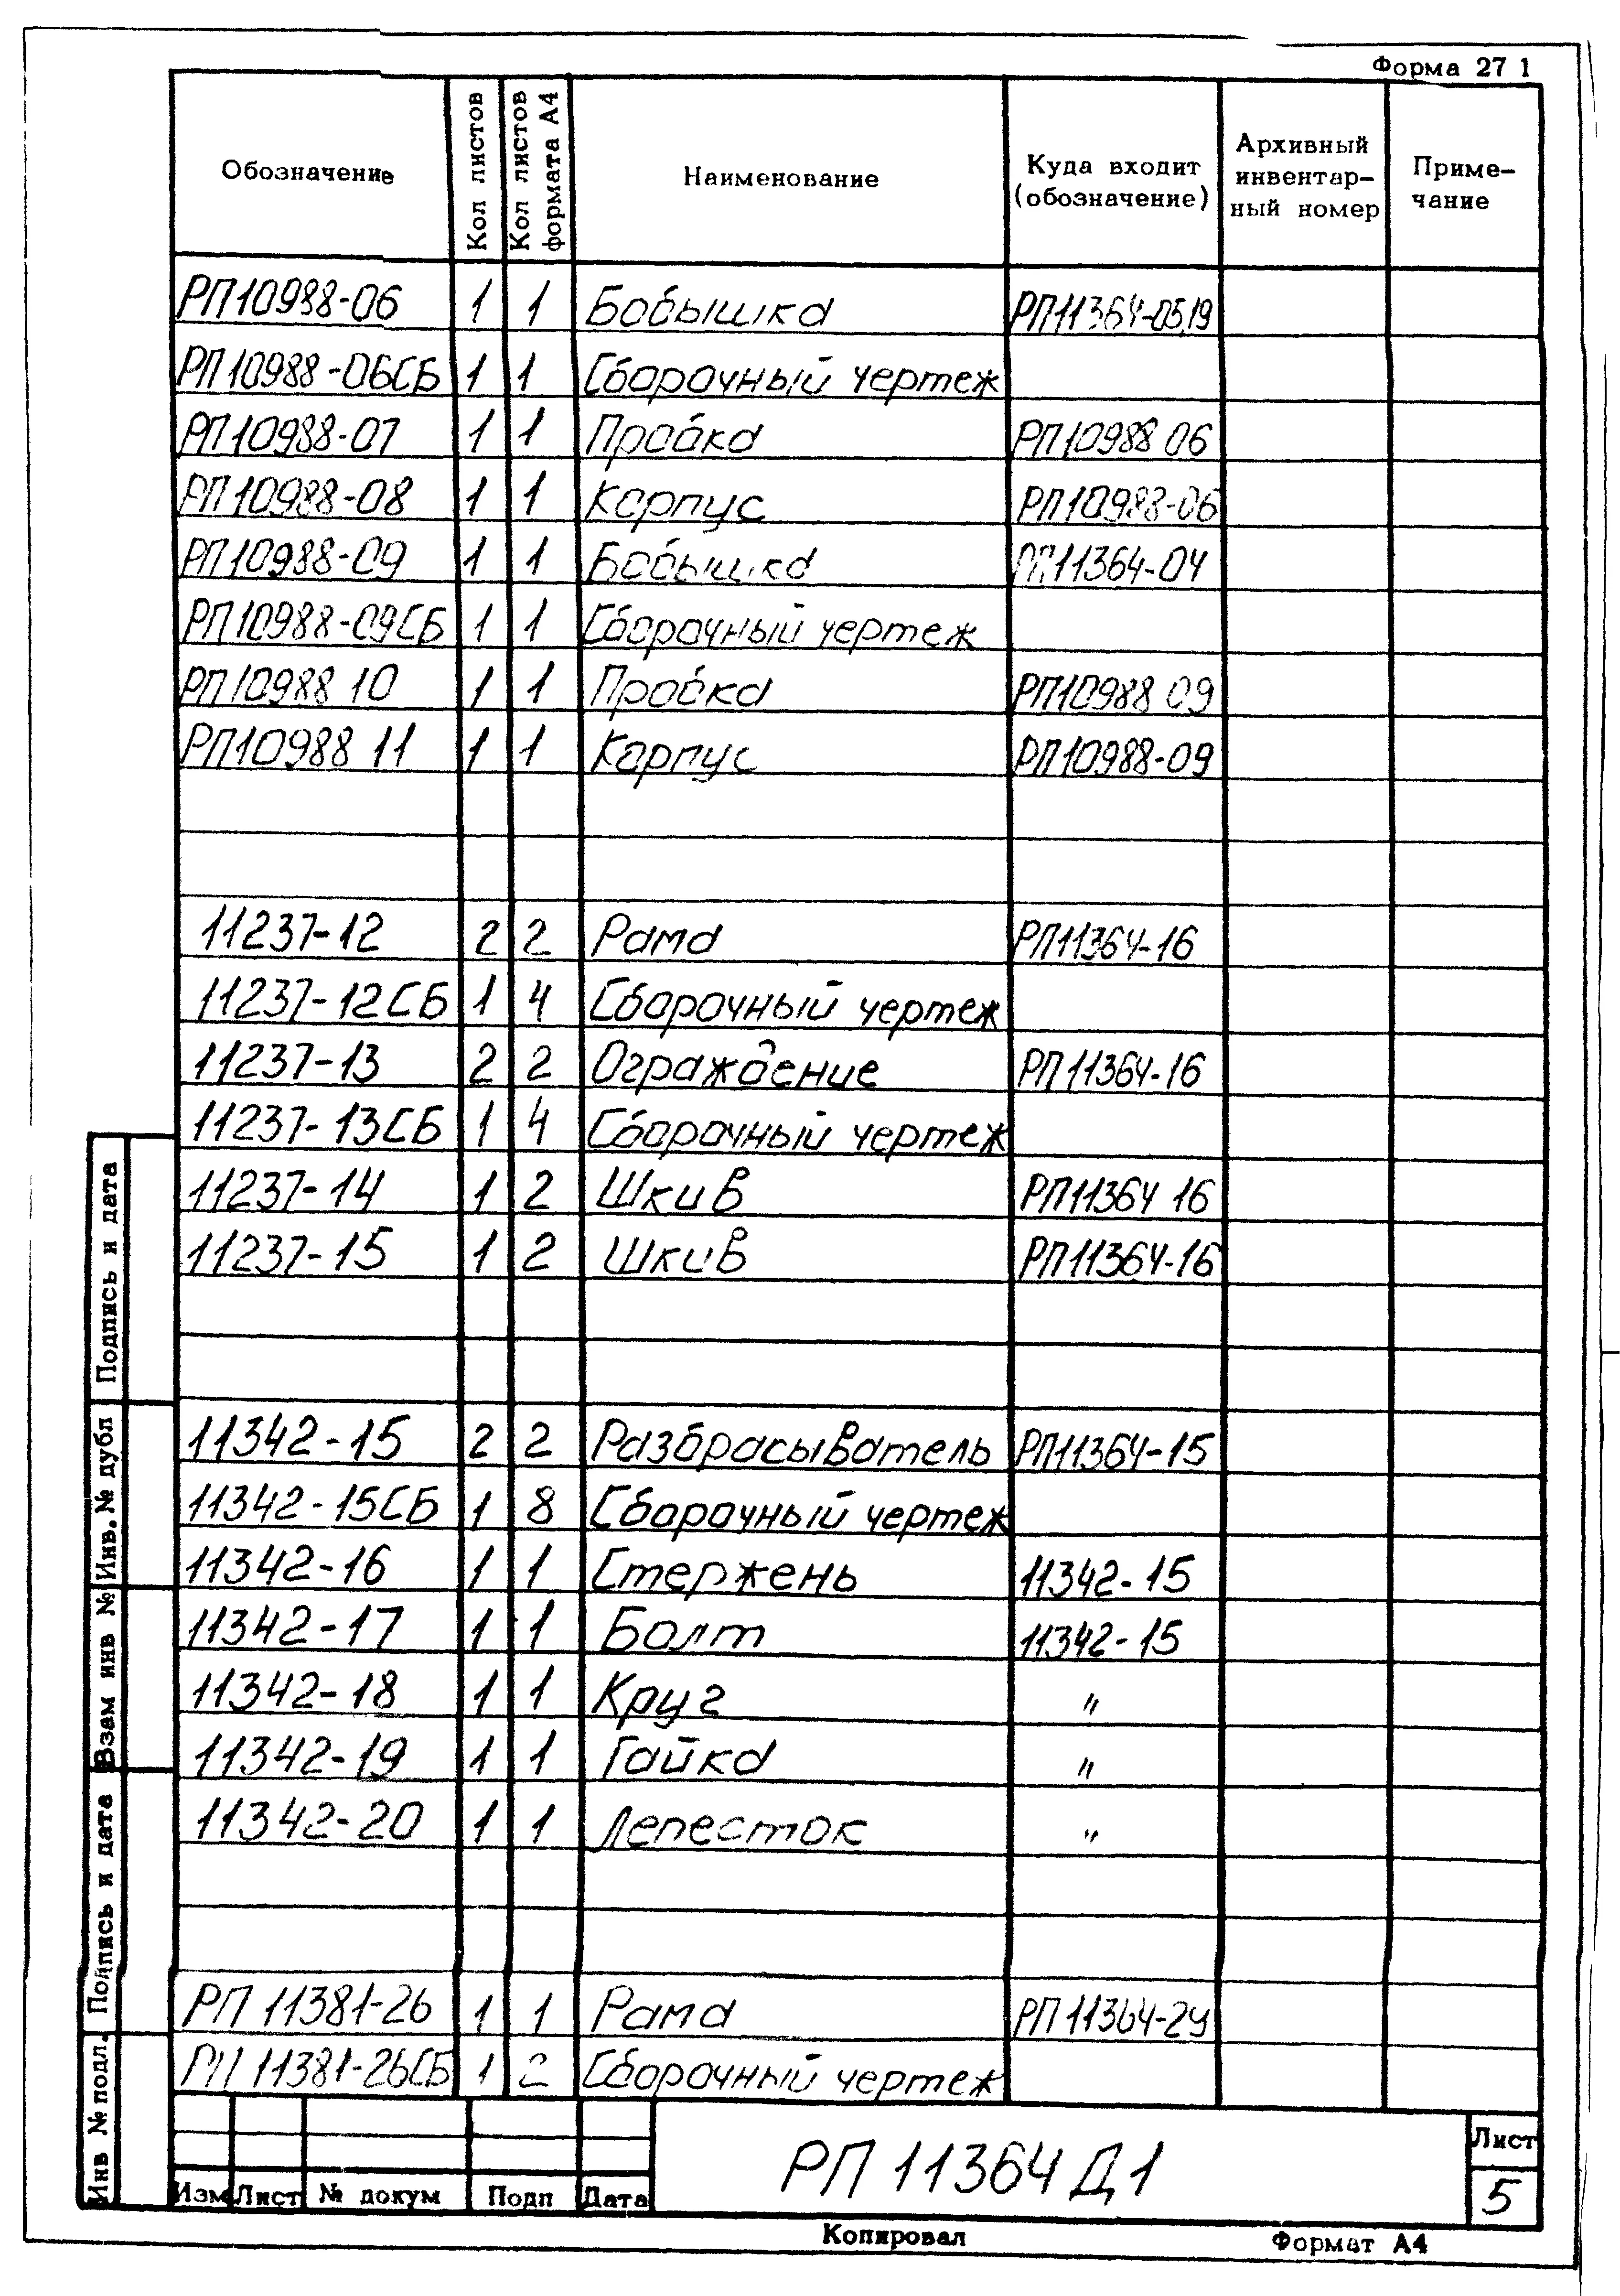 Форма 27 1
Обозначение | Кол листов | Кол листов формата А4 | Наименование | Куда входит (обозначение) | Архивный инвентар-ный номер | Приме-чание
РП10988-06 1 1 Бобышка РП11364-05,19
РП10988-06СБ 1 1 Сборочный чертеж
РП10988-07 1 1 Пробка РП10988 06
РП10988-08 1 1 Корпус РП10988-06
РП10988-09 1 1 Бобышка РП11364-04
РП10988-09СБ 1 1 Сборочный чертеж
РП10988 10 1 1 Пробка РП10988 09
РП10988 11 1 1 Корпус РП10988-09
11237-12 2 2 Рама РП11364-16
11237-12СБ 1 4 Сборочный чертеж
11237-13 2 2 Ограждение РП11364-16
11237-13СБ 1 4 Сборочный чертеж
11237-14 1 2 Шкив РП11364 16
11237-15 1 2 Шкив РП11364-16
11342-15 2 2 Разбрасыватель РП11364-15
11342-15СБ 1 8 Сборочный чертеж
11342-16 1 1 Стержень 11342-15
11342-17 1 1 Болт 11342-15
11342-18 1 1 Круг "
11342-19 1 1 Гайка "
11342-20 1 1 Лепесток "
РП 11381-26 1 1 Рама РП 11364-24
РП 11381-26СБ 1 2 Сборочный чертеж
Подпись и дата
Инв. № дубл
Взам инв №
Подпись и дата
Инв № подл.
Изм Лист № докум Подп Дата
РП 11364 Д1
Лист
5
Копировал Формат А4